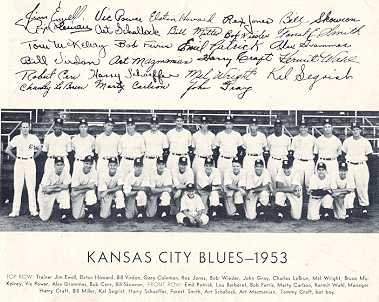 Jim Ewell Vic Power Elston Howard Rex Jones Bill Skowron
Art Schallock Bill Miller Bob Wiesler Forest Smith
Tom McKelvey Bob Ferris Emil Patrick Alex Grammas
Bill Virdon Art Harry Craft Kermit Wahl
Bob Carr Harry Schaeffer Mel Wright Kal Segrist
Charley Marty Carlson John Gray
KANSAS CITY BLUES—1953
TOP ROW: Trainer Jim Ewell, Elston Howard, Bill Virdon, Gary Coleman, Rex Jones, Bob Wiesler, John Gray, Charles Mel Wright,
Vic Power, Alex Grammas, Bob Carr, Bill Skowron. FRONT ROW: Emil Patrick, Lou Berberet, Bob Ferris, Marty Carlson, Kermit Wahl, Manager
Harry Craft, Bill Miller, Kal Segrist, Harry Schaeffer, Forest Smith, Art Schallock, Art Tommy Craft, bat boy.